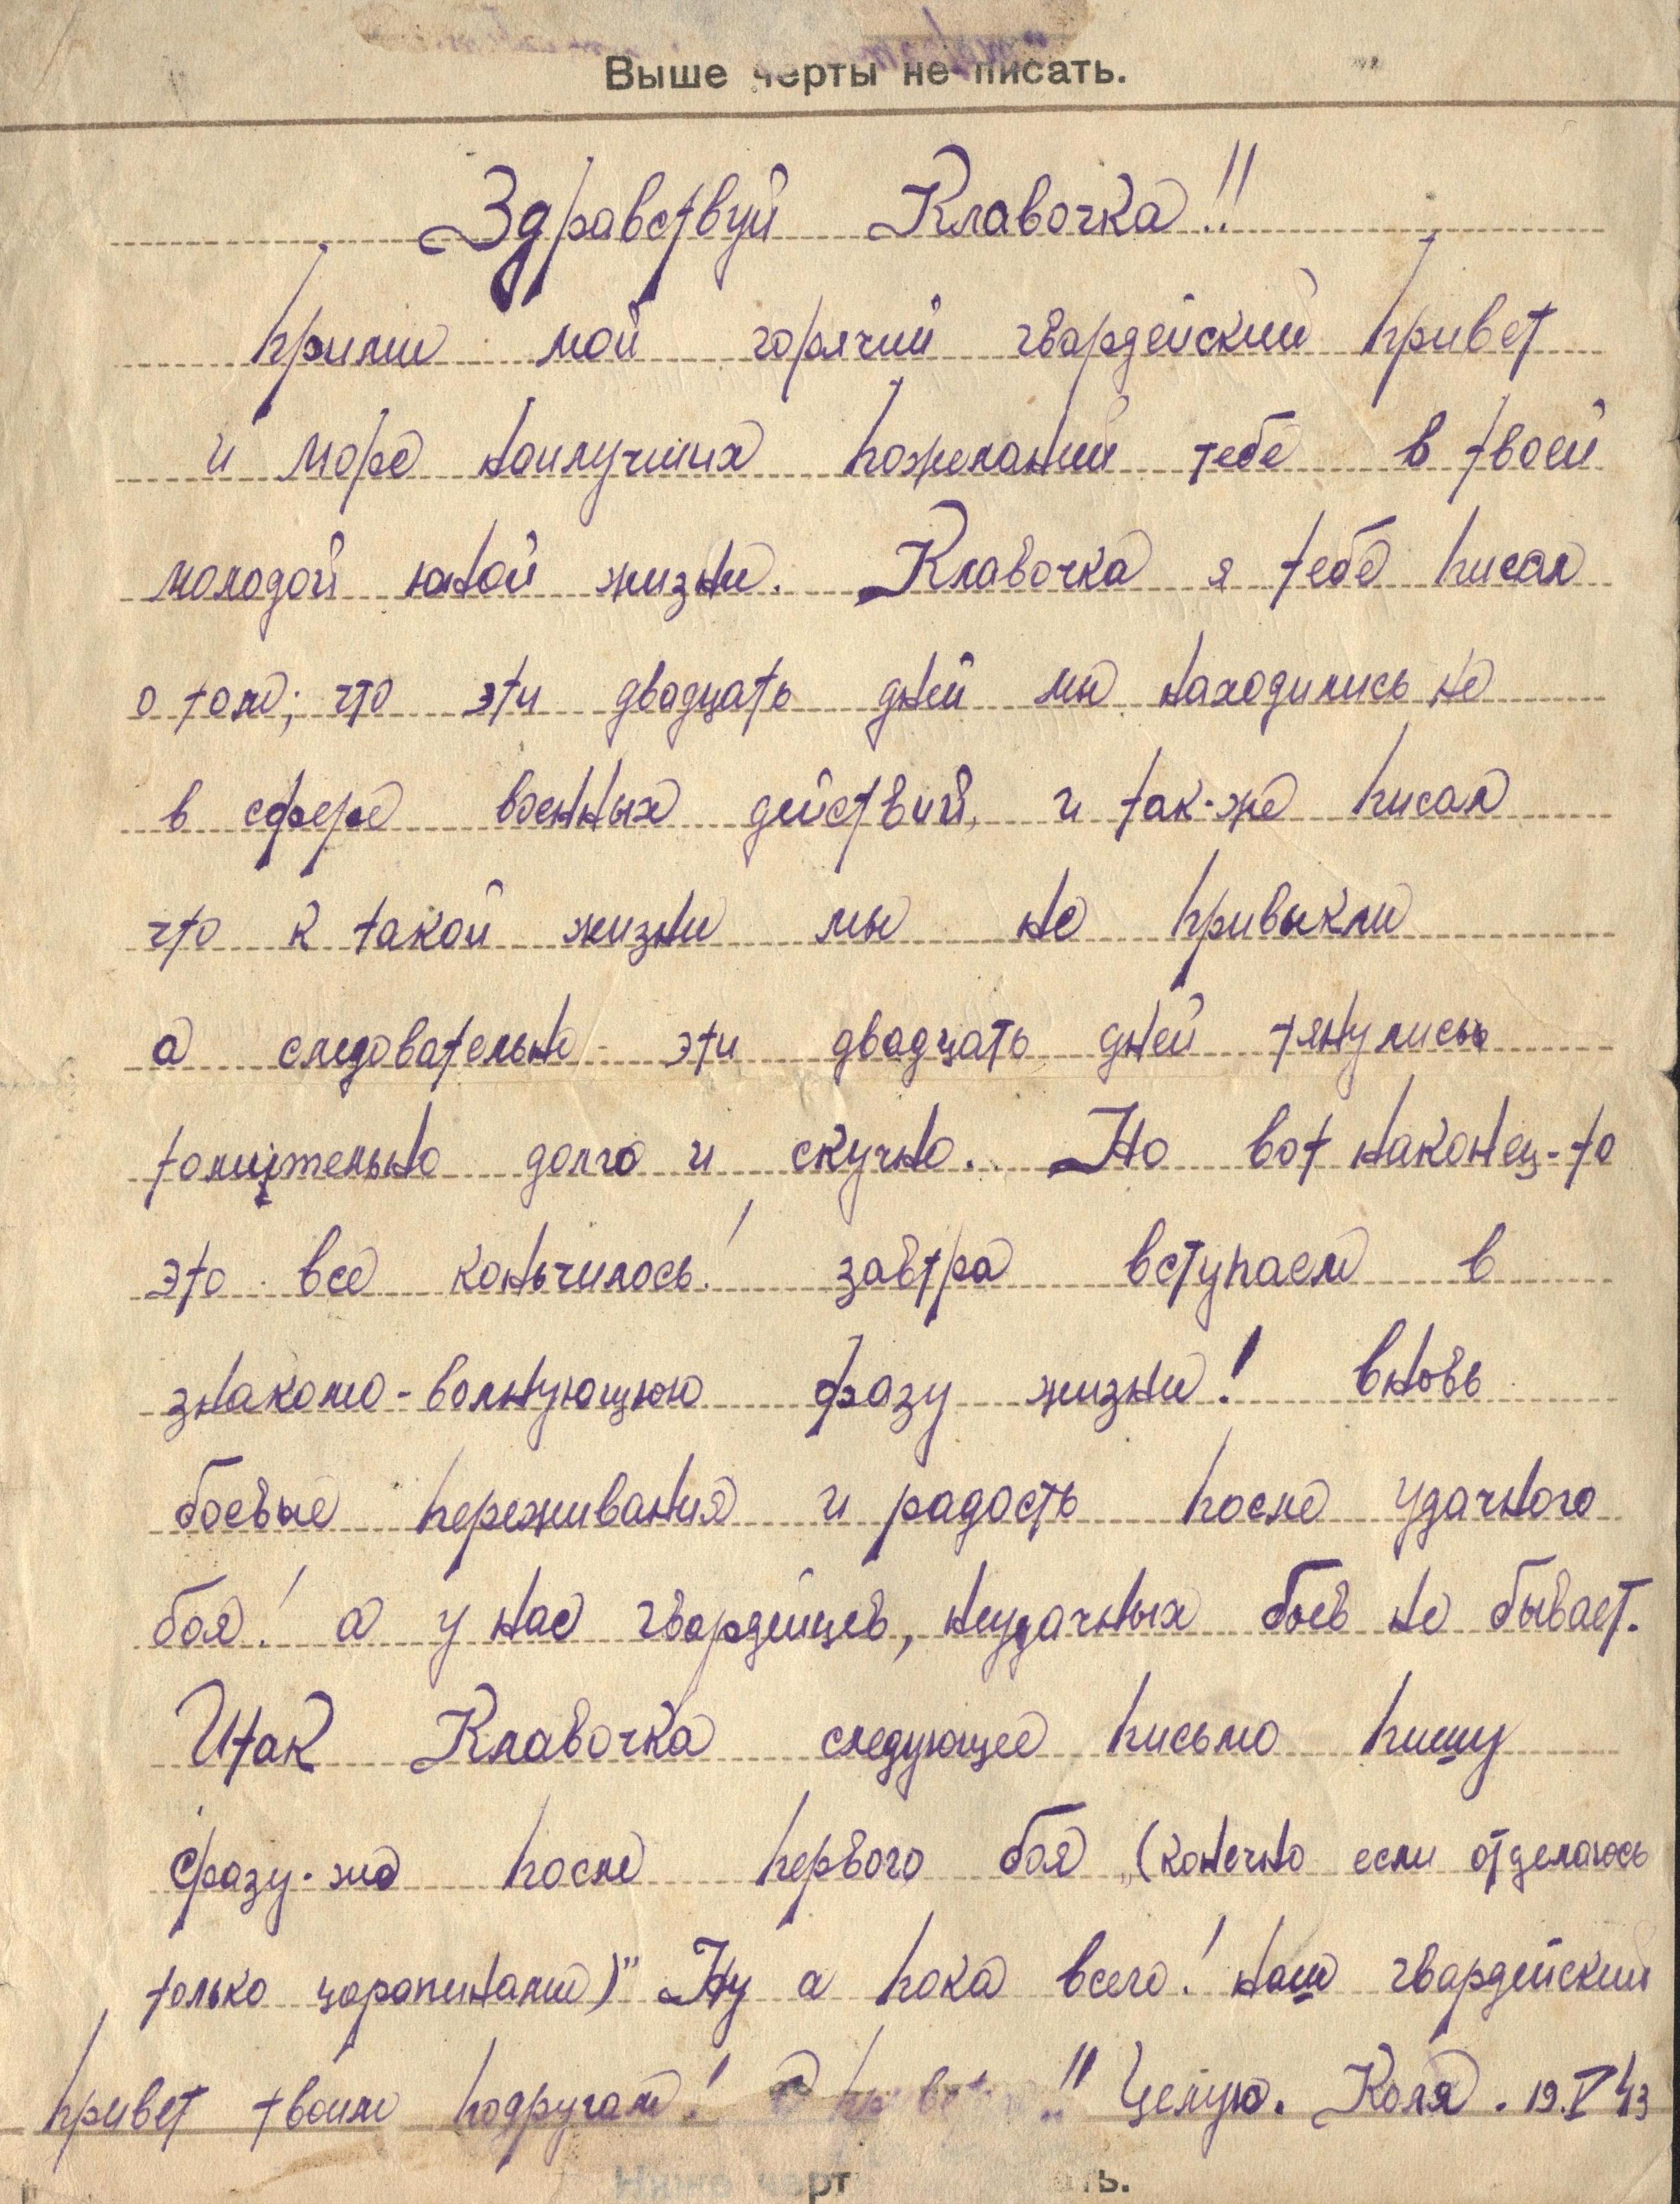 Выше черты не писать.
Здравствуй Клавочка!!
прими мой горячий гвардейский привет
и море наилучших пожеланий тебе в твоей
молодой юной жизни. Клавочка я тебе писал
о том; что эти двадцать дней мы находились не
в сфере военных действий, и так-же писал
что к такой жизни мы не привыкли
а следовательно эти двадцать дней тянулись
томительно долго и скучно. Но вот наконец-то
это все коньчилось! завтра вступаем в
знакомо-волнующую фазу жизни! вновь
боевые переживания и радость после удачного
боя! а у нас гвардейцев, неудачных боев не бывает.
Итак Клавочка следующее письмо пишу
сразу-же после первого боя „(конечно если отделаюсь
только царапинами)" Ну а пока всего! наш гвардейский
привет твоим подругам! С приветом!! Целую. Коля. 19.V 43
Ниже черт ть.